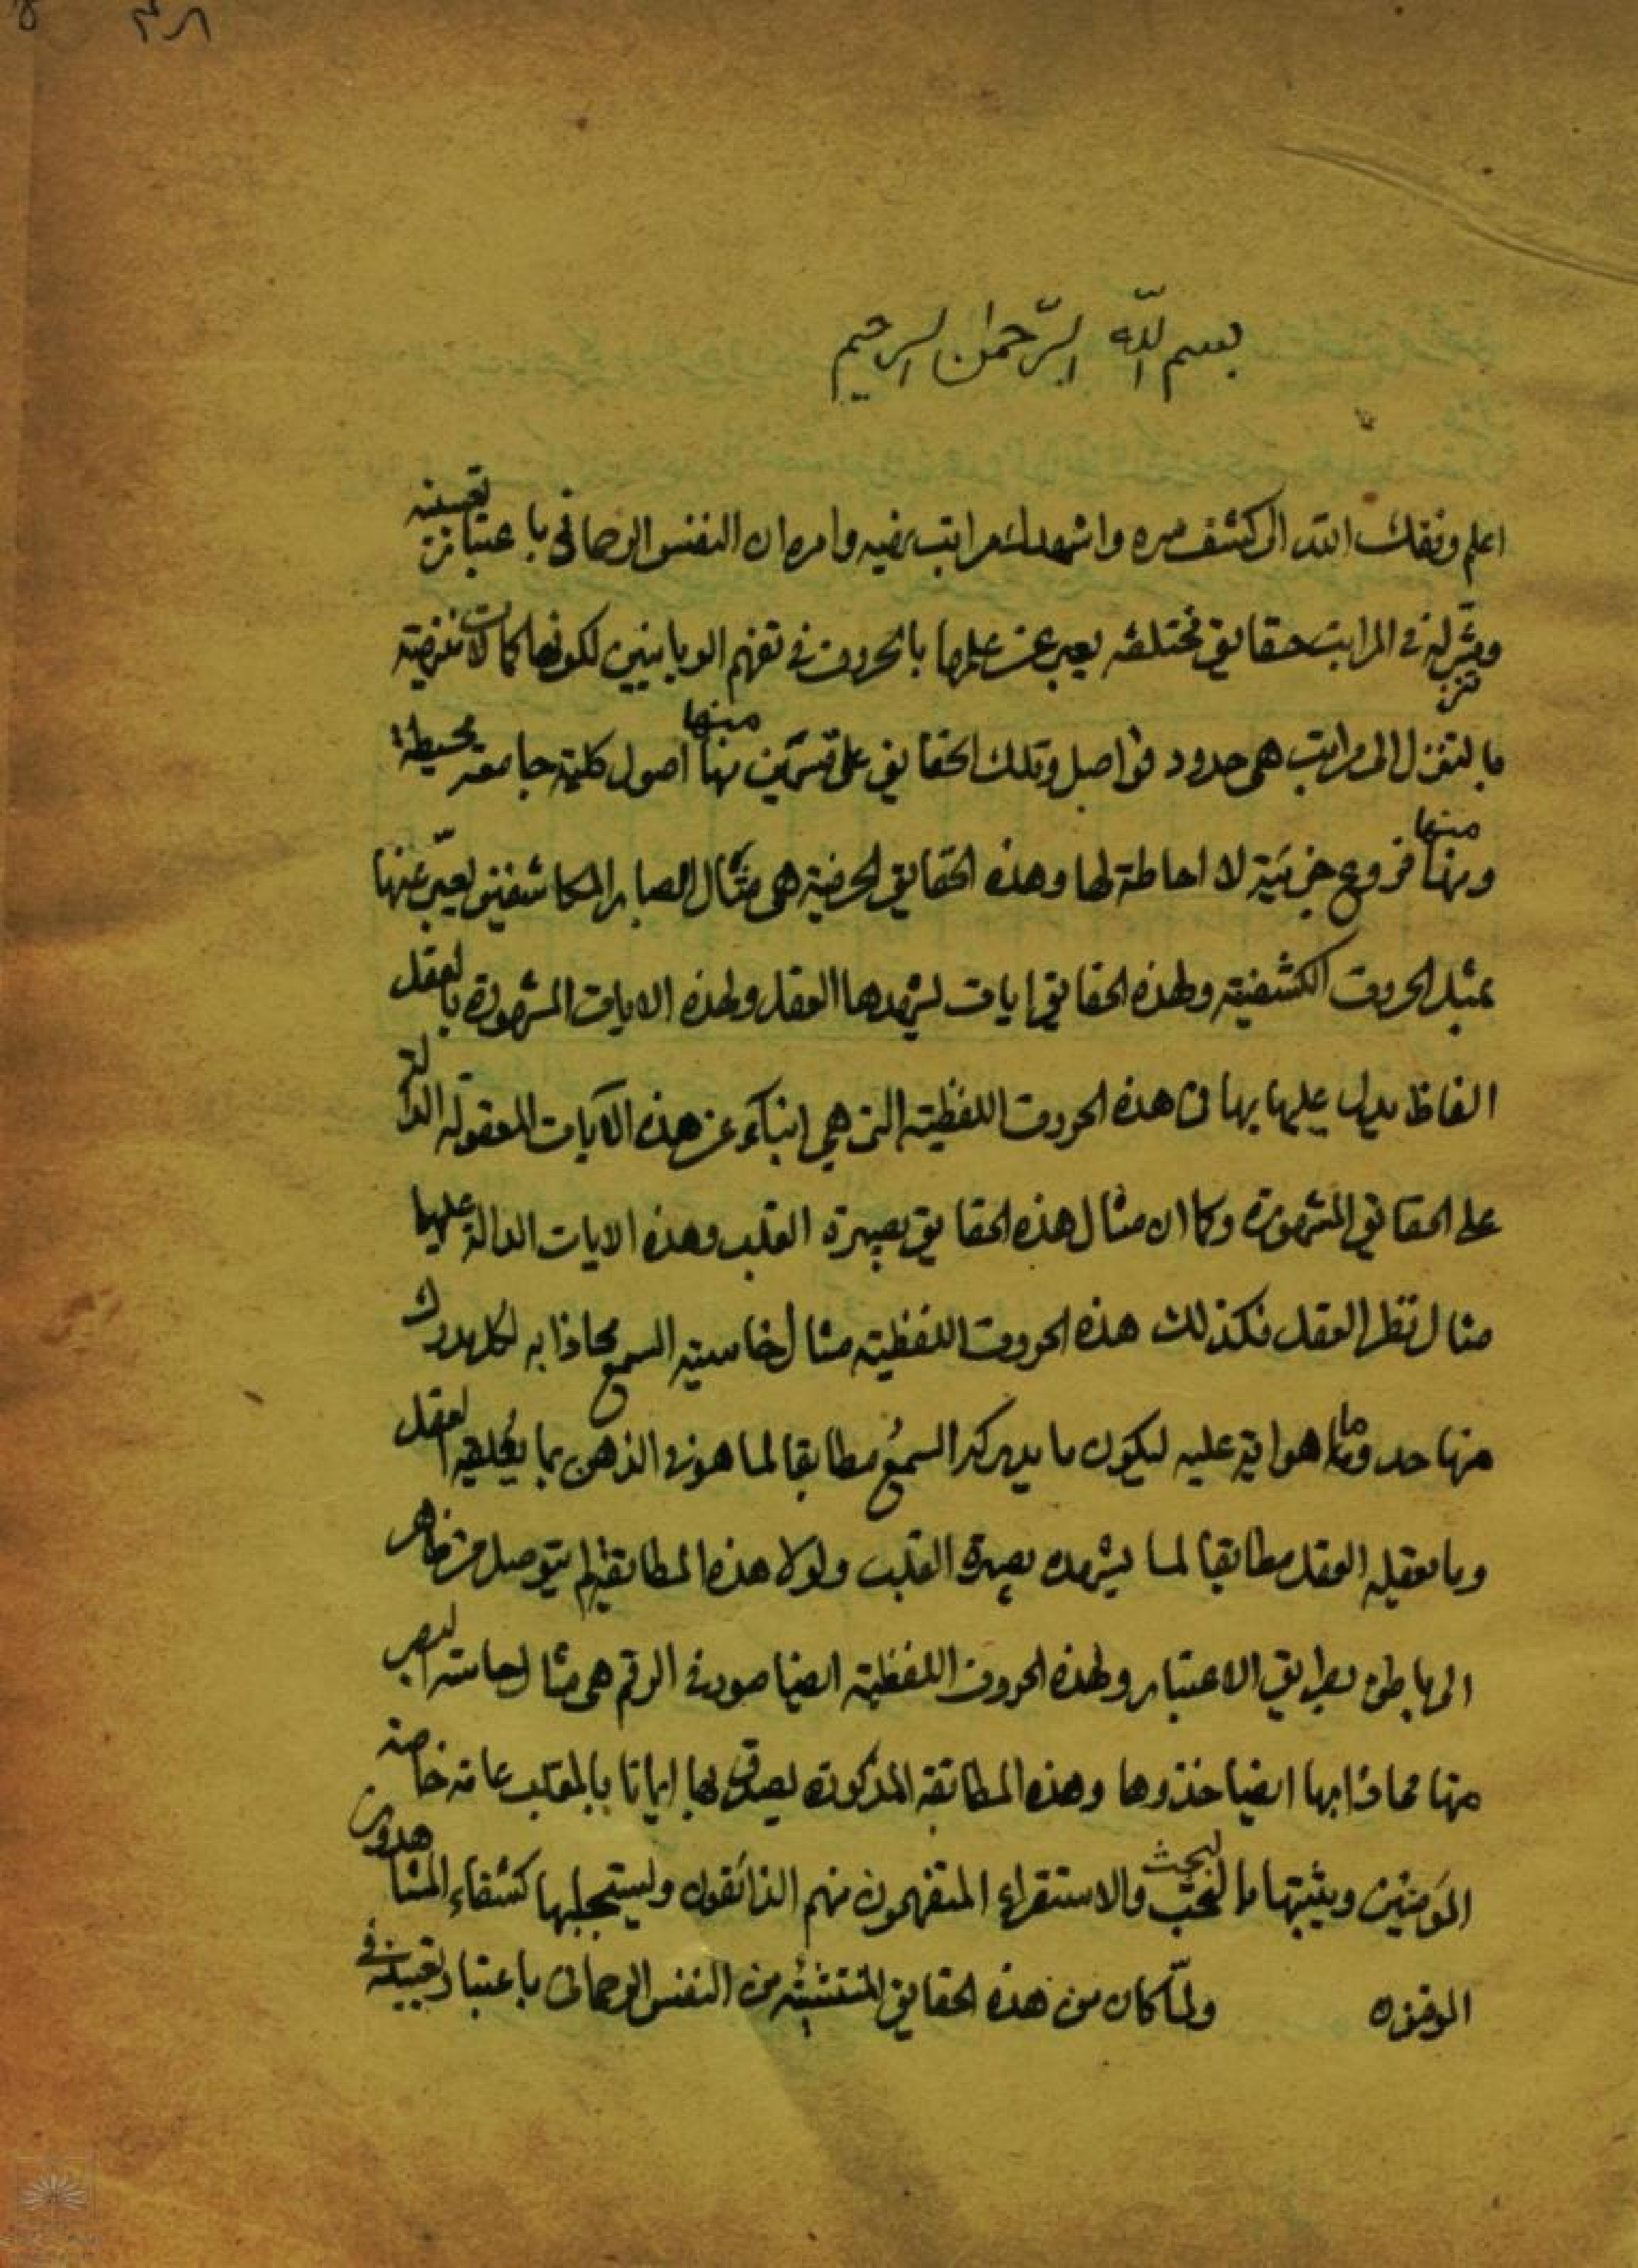 بسم الله الرحمن الرحيم
اعلم وفقك الله الى كشف سره واشهدك مراتب نهيه وامره ان النفس الرحمانى باعتبار تعينه
وتنزله فى المراتب حقايق مختلفه يعبر عن علمها بالحروف فى تفهم الربانيين لكونها كمالات
بالتنزل الى مراتب هى حدود فواصل وتلك الحقايق على قسمين منها اصول كلية جامعة محيطة
ومنها فروع جزئية لا احاطة لها وهذه الحقايق الحرفية هى مثال ابصار المكاشفين يعبّر عنها
بمثل الحروف الكشفية ولهذه الحقايق ايات يشهدها العقل ولهذه الايات المشهودة بالعقل
الفاظ يدل عليها بها فى هذه الحروف اللفظية التى هى انباء عن هذه الآيات المعقولة الدالة
على الحقايق المشهودة وكما ان مثال هذه الحقايق بصيرة القلب وهذه الايات الدالة عليها
مثال نظر العقل فكذلك هذه الحروف اللفظية مثال لخاسية السمع محاذا به لكل مدرك
منها حد وما هو اية عليه ليكون ما يدركه السمع مطابقا لما هو فى الذهن بما العقل
وما يعقله العقل مطابقا لما يشهده بصيرة القلب ولولا هذه المطابقة لم يتوصل من ظاهر
الى باطن بطريق الاعتبار ولهذه الحروف اللفظية ايضا صور فى الرقم هى مثال لحاسة البصر
منها محاذا بها ايضا حذوها وهذه المطابقة المذكورة يصدق بها ايمانا بالقلب عامة خاصة
المؤمنين ويثبتها بالبحث والاستقراء المتفهمون منهم الذائقون ويستجليها كشفاء المشاهدون
الموقنون ولمّا كان من هذه الحقايق المنتشئة من النفس الرحمانى باعتبار تعينه فى